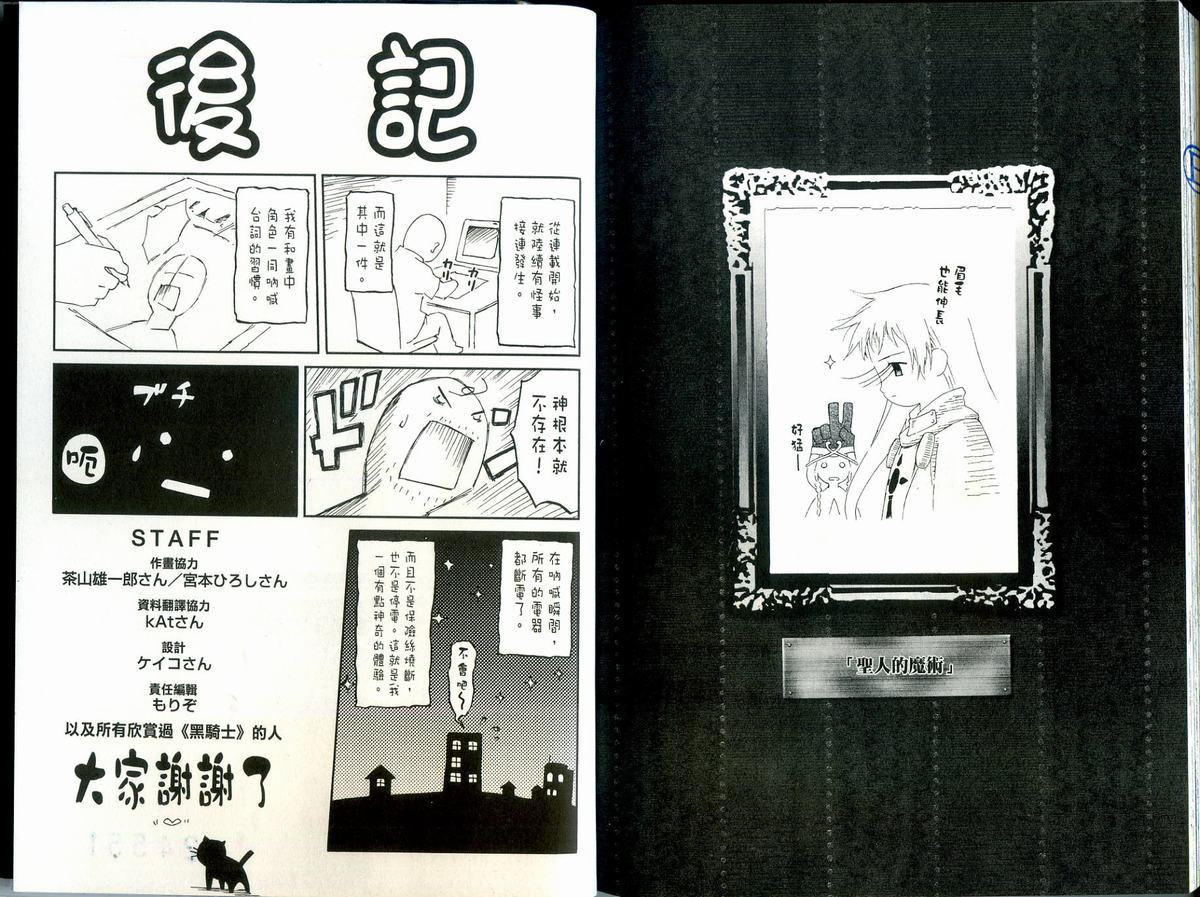 眉毛
也能伸長
好猛—
「聖人的魔術」
後記
從連載開始，
就陸續有怪事
接連發生。
而這就是
其中一件。
カリ
カリ
我有和畫中
角色一同吶喊
台詞的習慣。
神根本就
不存在！
ドドド
ブチ
呃
在吶喊瞬間，
所有的電器
都斷電了。
而且不是保險絲燒斷，
也不是停電。這就是我
一個有點神奇的體驗。
不會吧～
STAFF
作畫協力
茶山雄一郎さん／宮本ひろしさん
資料翻譯協力
kAtさん
設計
ケイコさん
責任編輯
もりぞ
以及所有欣賞過《黑騎士》的人
大家謝謝了